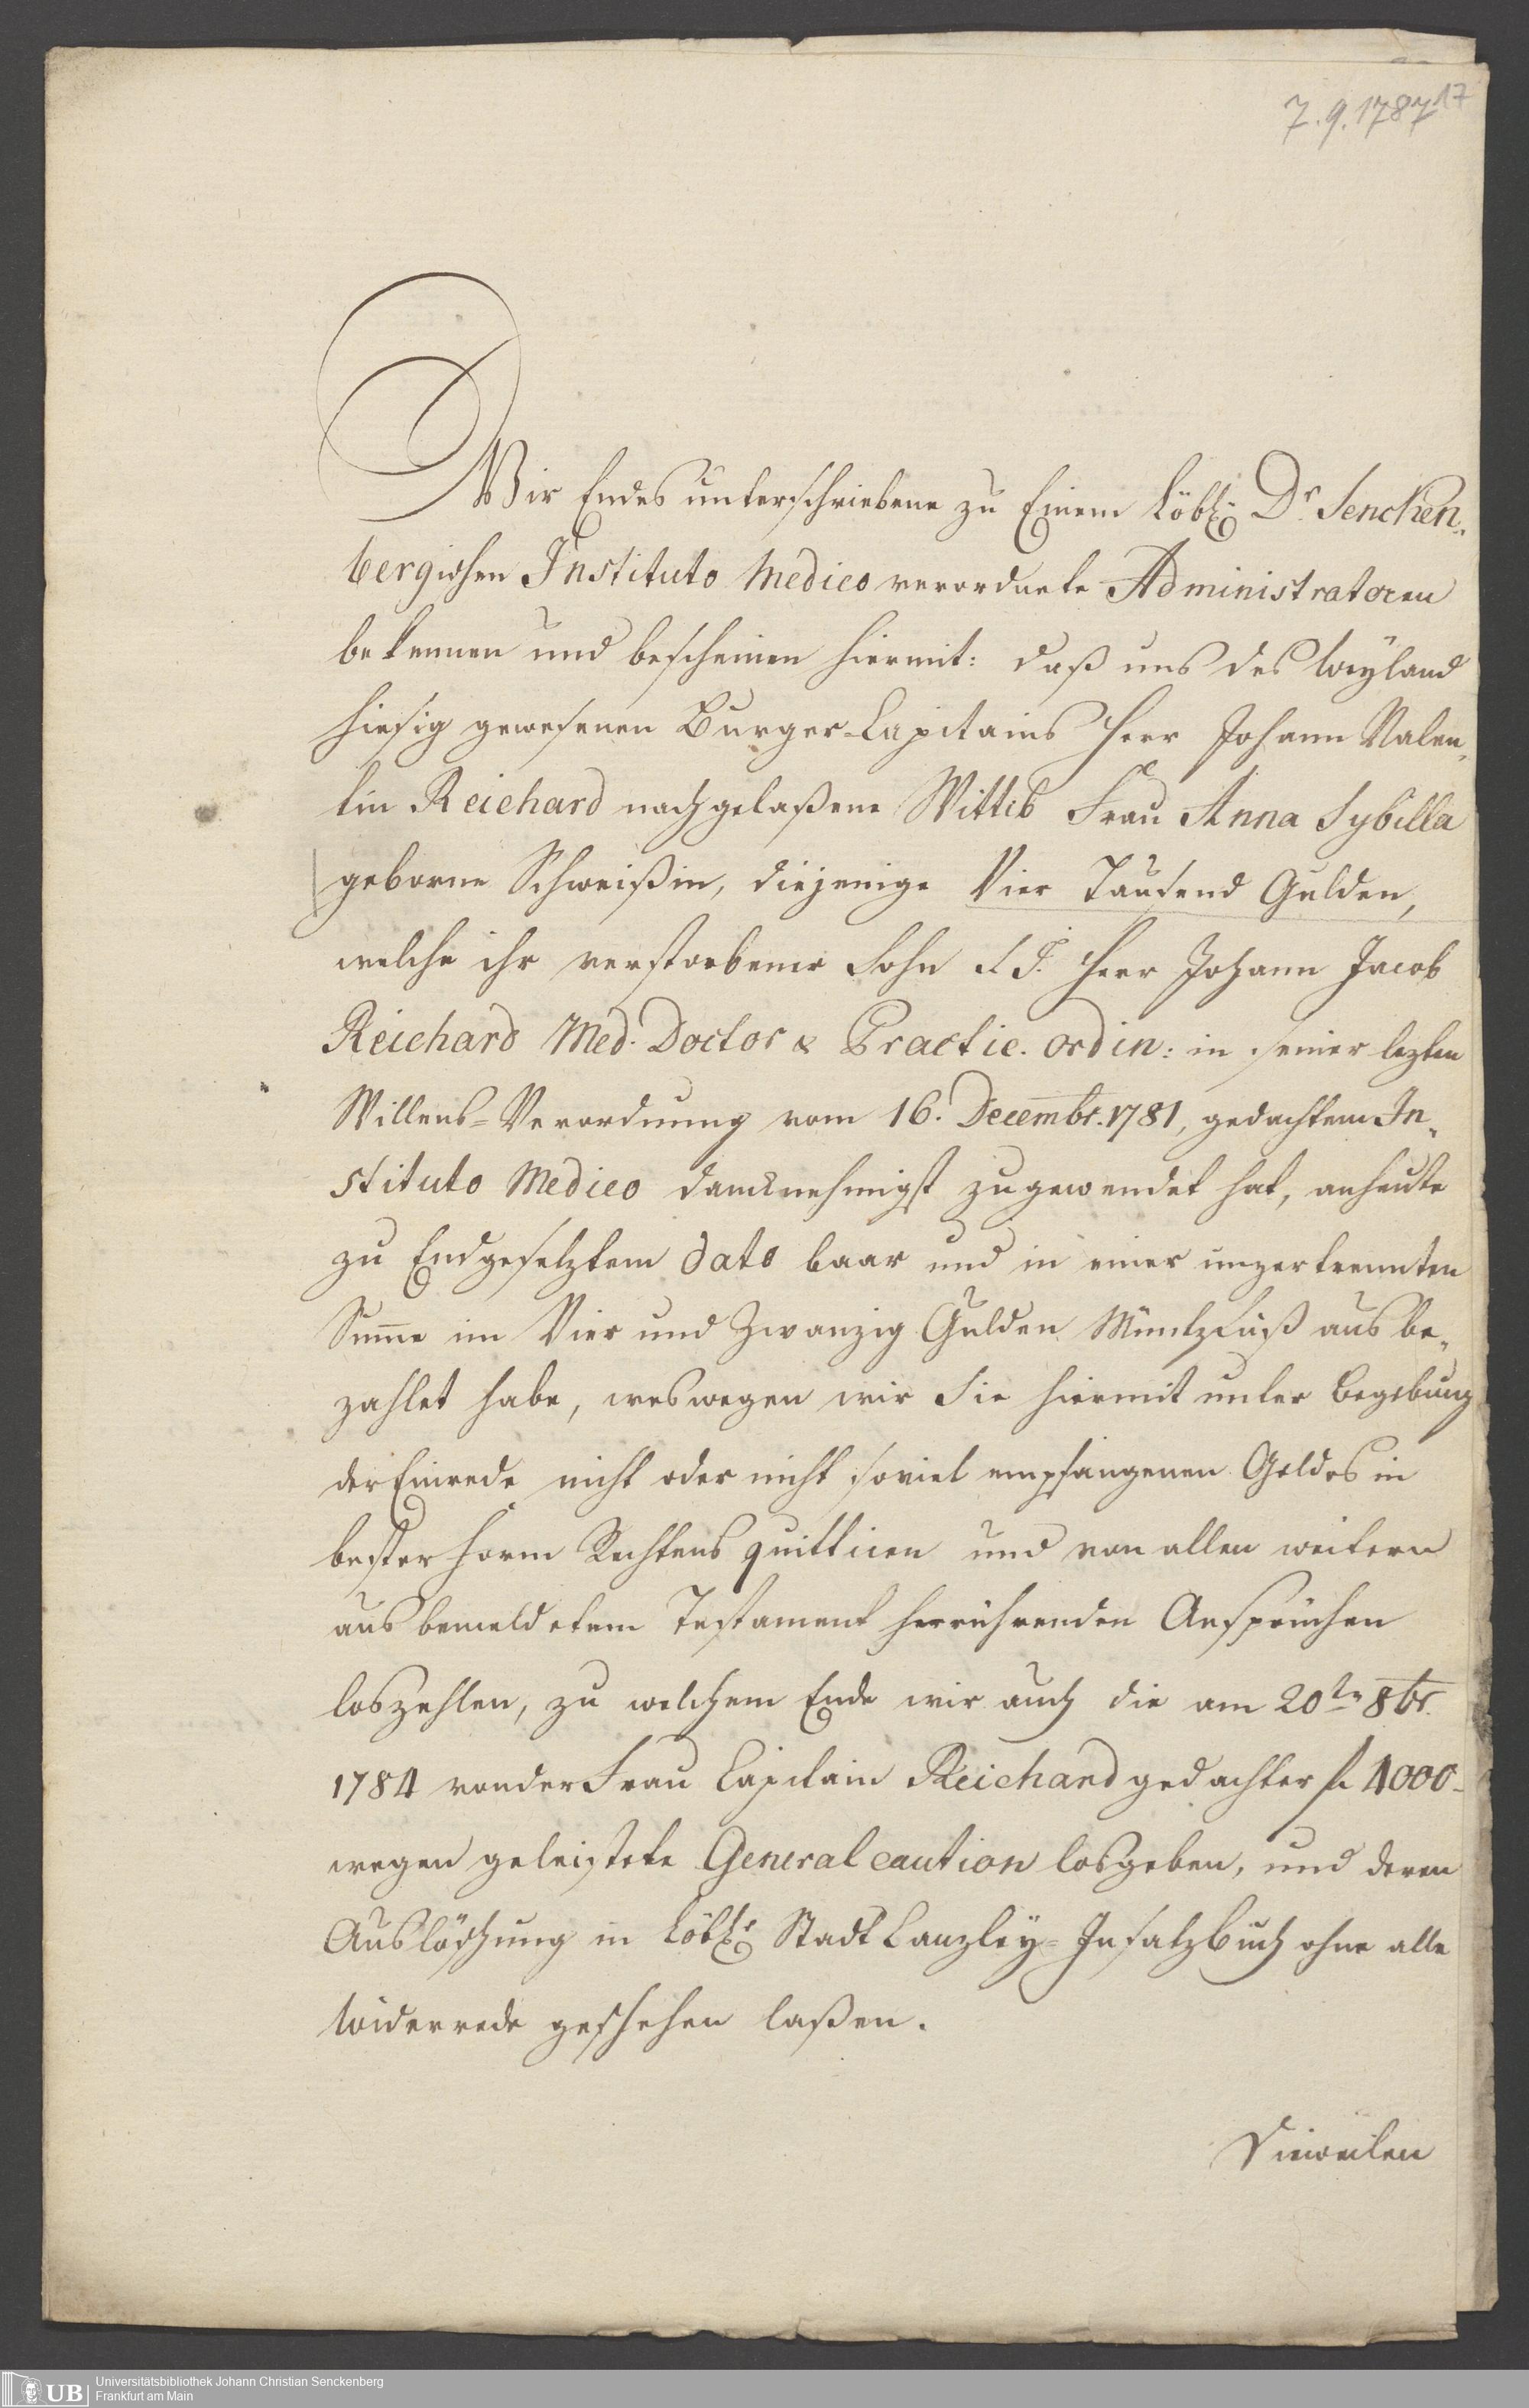 7.9.1787 17
Wir Endes unterschriebene zu Einem Löbl: Dr Sencken-
bergischen Instituto Medico verordnete Administratoren
bekennen und bescheinen hiermit: daß uns des weyland
hiesig gewesenen Burger-Capitains Herr Johann Valen-
tin Reichard nachgelaßene Wittib Frau Anna Sybilla
geborne Schweißin, diejenige Vier Tausend Gulden,
welche ihr verstorbener Sohn S. T. Herr Johann Jacob
Reichard Med. Doctor & Practic. ordin: in seiner lezten
Willens-Verordnung vom 16. Decembr. 1781, gedachtem In-
stituto Medico dancknehmigst zugewendet hat, anheute
zu Endgesetztem dato baar und in einer unzertrennten
Sum̅e im Vier und Zwanzig Gulden Müntzfuß ausbe-
zahlet habe, weswegen wir Sie hiermit unter Begebung
der Einrede nicht oder nicht soviel empfangenen Geldes in
bester Form Rechtens quittiren und von allen weitern
aus bemeldetem Testament herrührenden Ansprüchen
loszehlen, zu welchem Ende wir auch die am 20ten 8br.
1784 von der Frau Capitain Reichard gedachter fl. 4000-
wegen geleistete General caution losgeben, und deren
Auslöschung in Löbl: Stadt Canzley-Insatzbuch ohne alle
Widerrede geschehen laßen.
Dieweilen
UB
Universitätsbibliothek Johann Christian Senckenberg
Frankfurt am Main